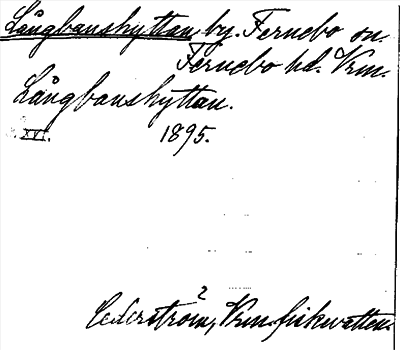 Långbanshyttan, by. Fernebo sn.
Fernebo hd. Vrm.
Långbanshyttan.
XVI. 1895.
2
Cederström, Vrm. fiskvatten.